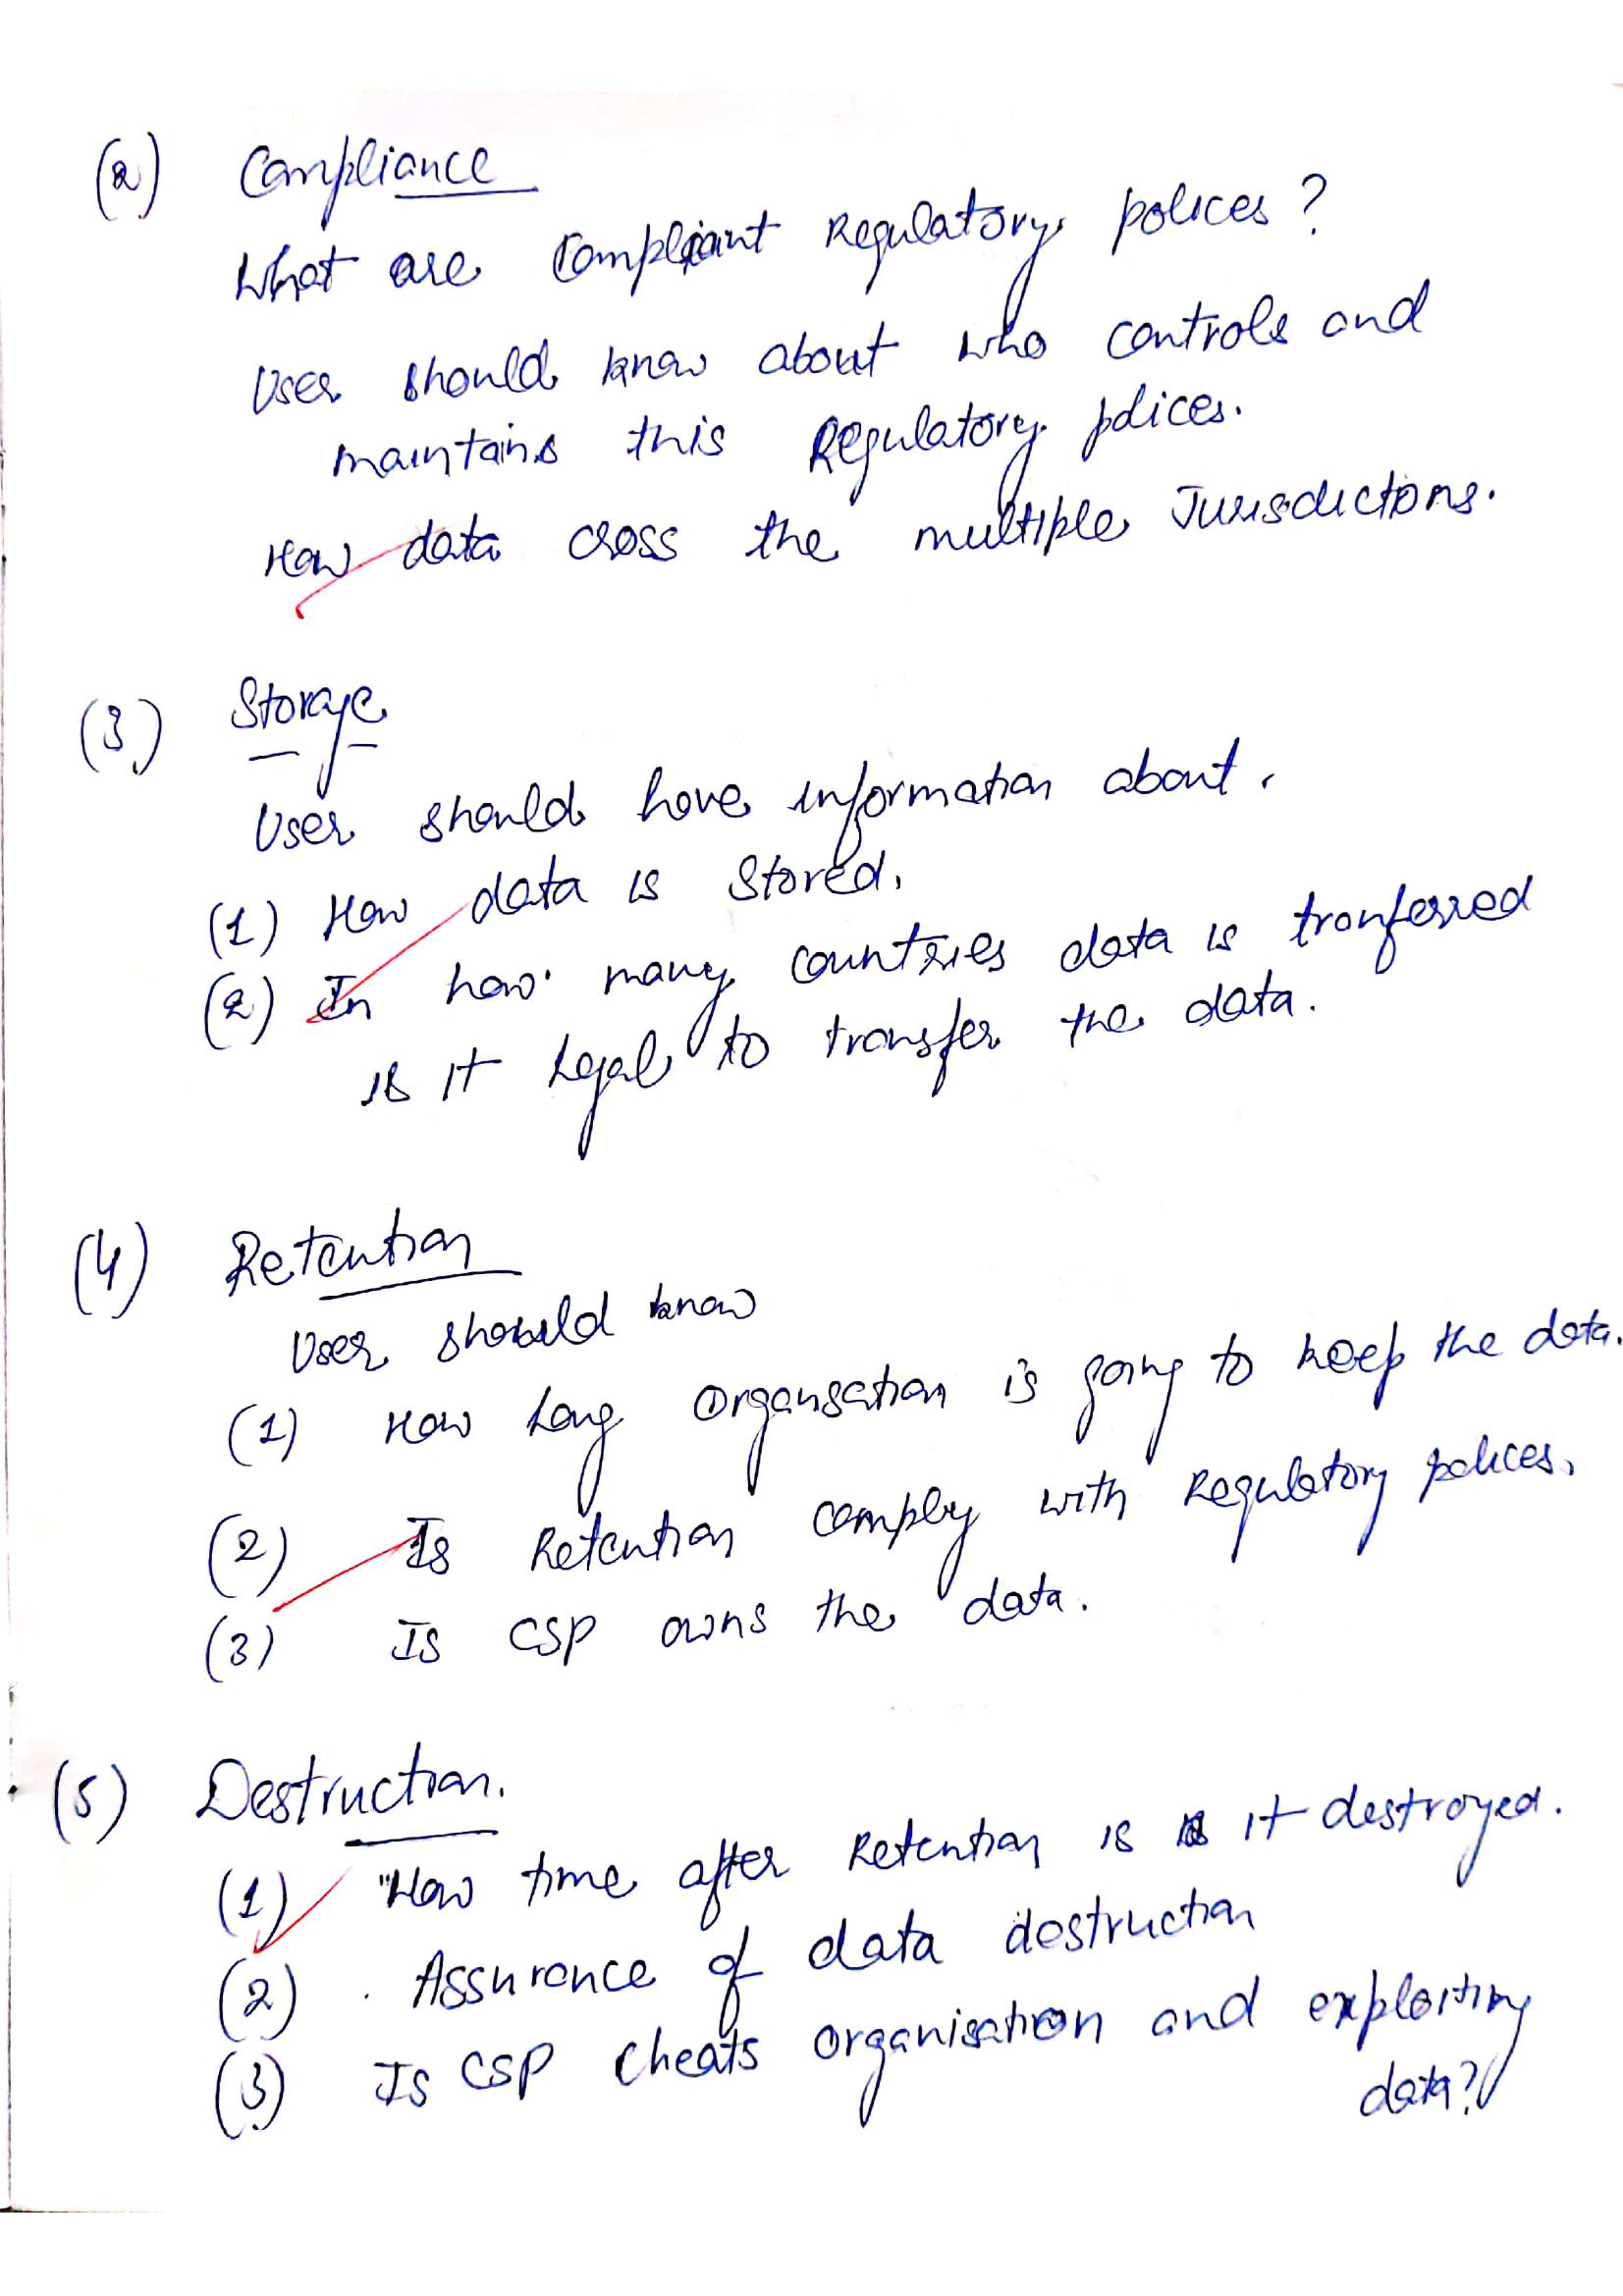 (2) Compliance
What are Compliant Regulatory polices ?
User should know about who controls and
maintains this Regulatory polices.
How data cross the multiple Jurisdictions.
(3) Storage
User should have information about.
(1) How data is Stored.
(2) In how many countries data is tranferred
is it Legal to transfer the data.
(4) Retention
User should know
(1) How Long Organisation is going to keep the data.
(2) Is Retention comply with Regulatory polices.
(3) Is CSP owns the data.
(5) Destruction.
(1) How time after Retention is it destroyed.
(2) Assurance of data destruction
(3) Is CSP Cheats organisation and exploiting
data?